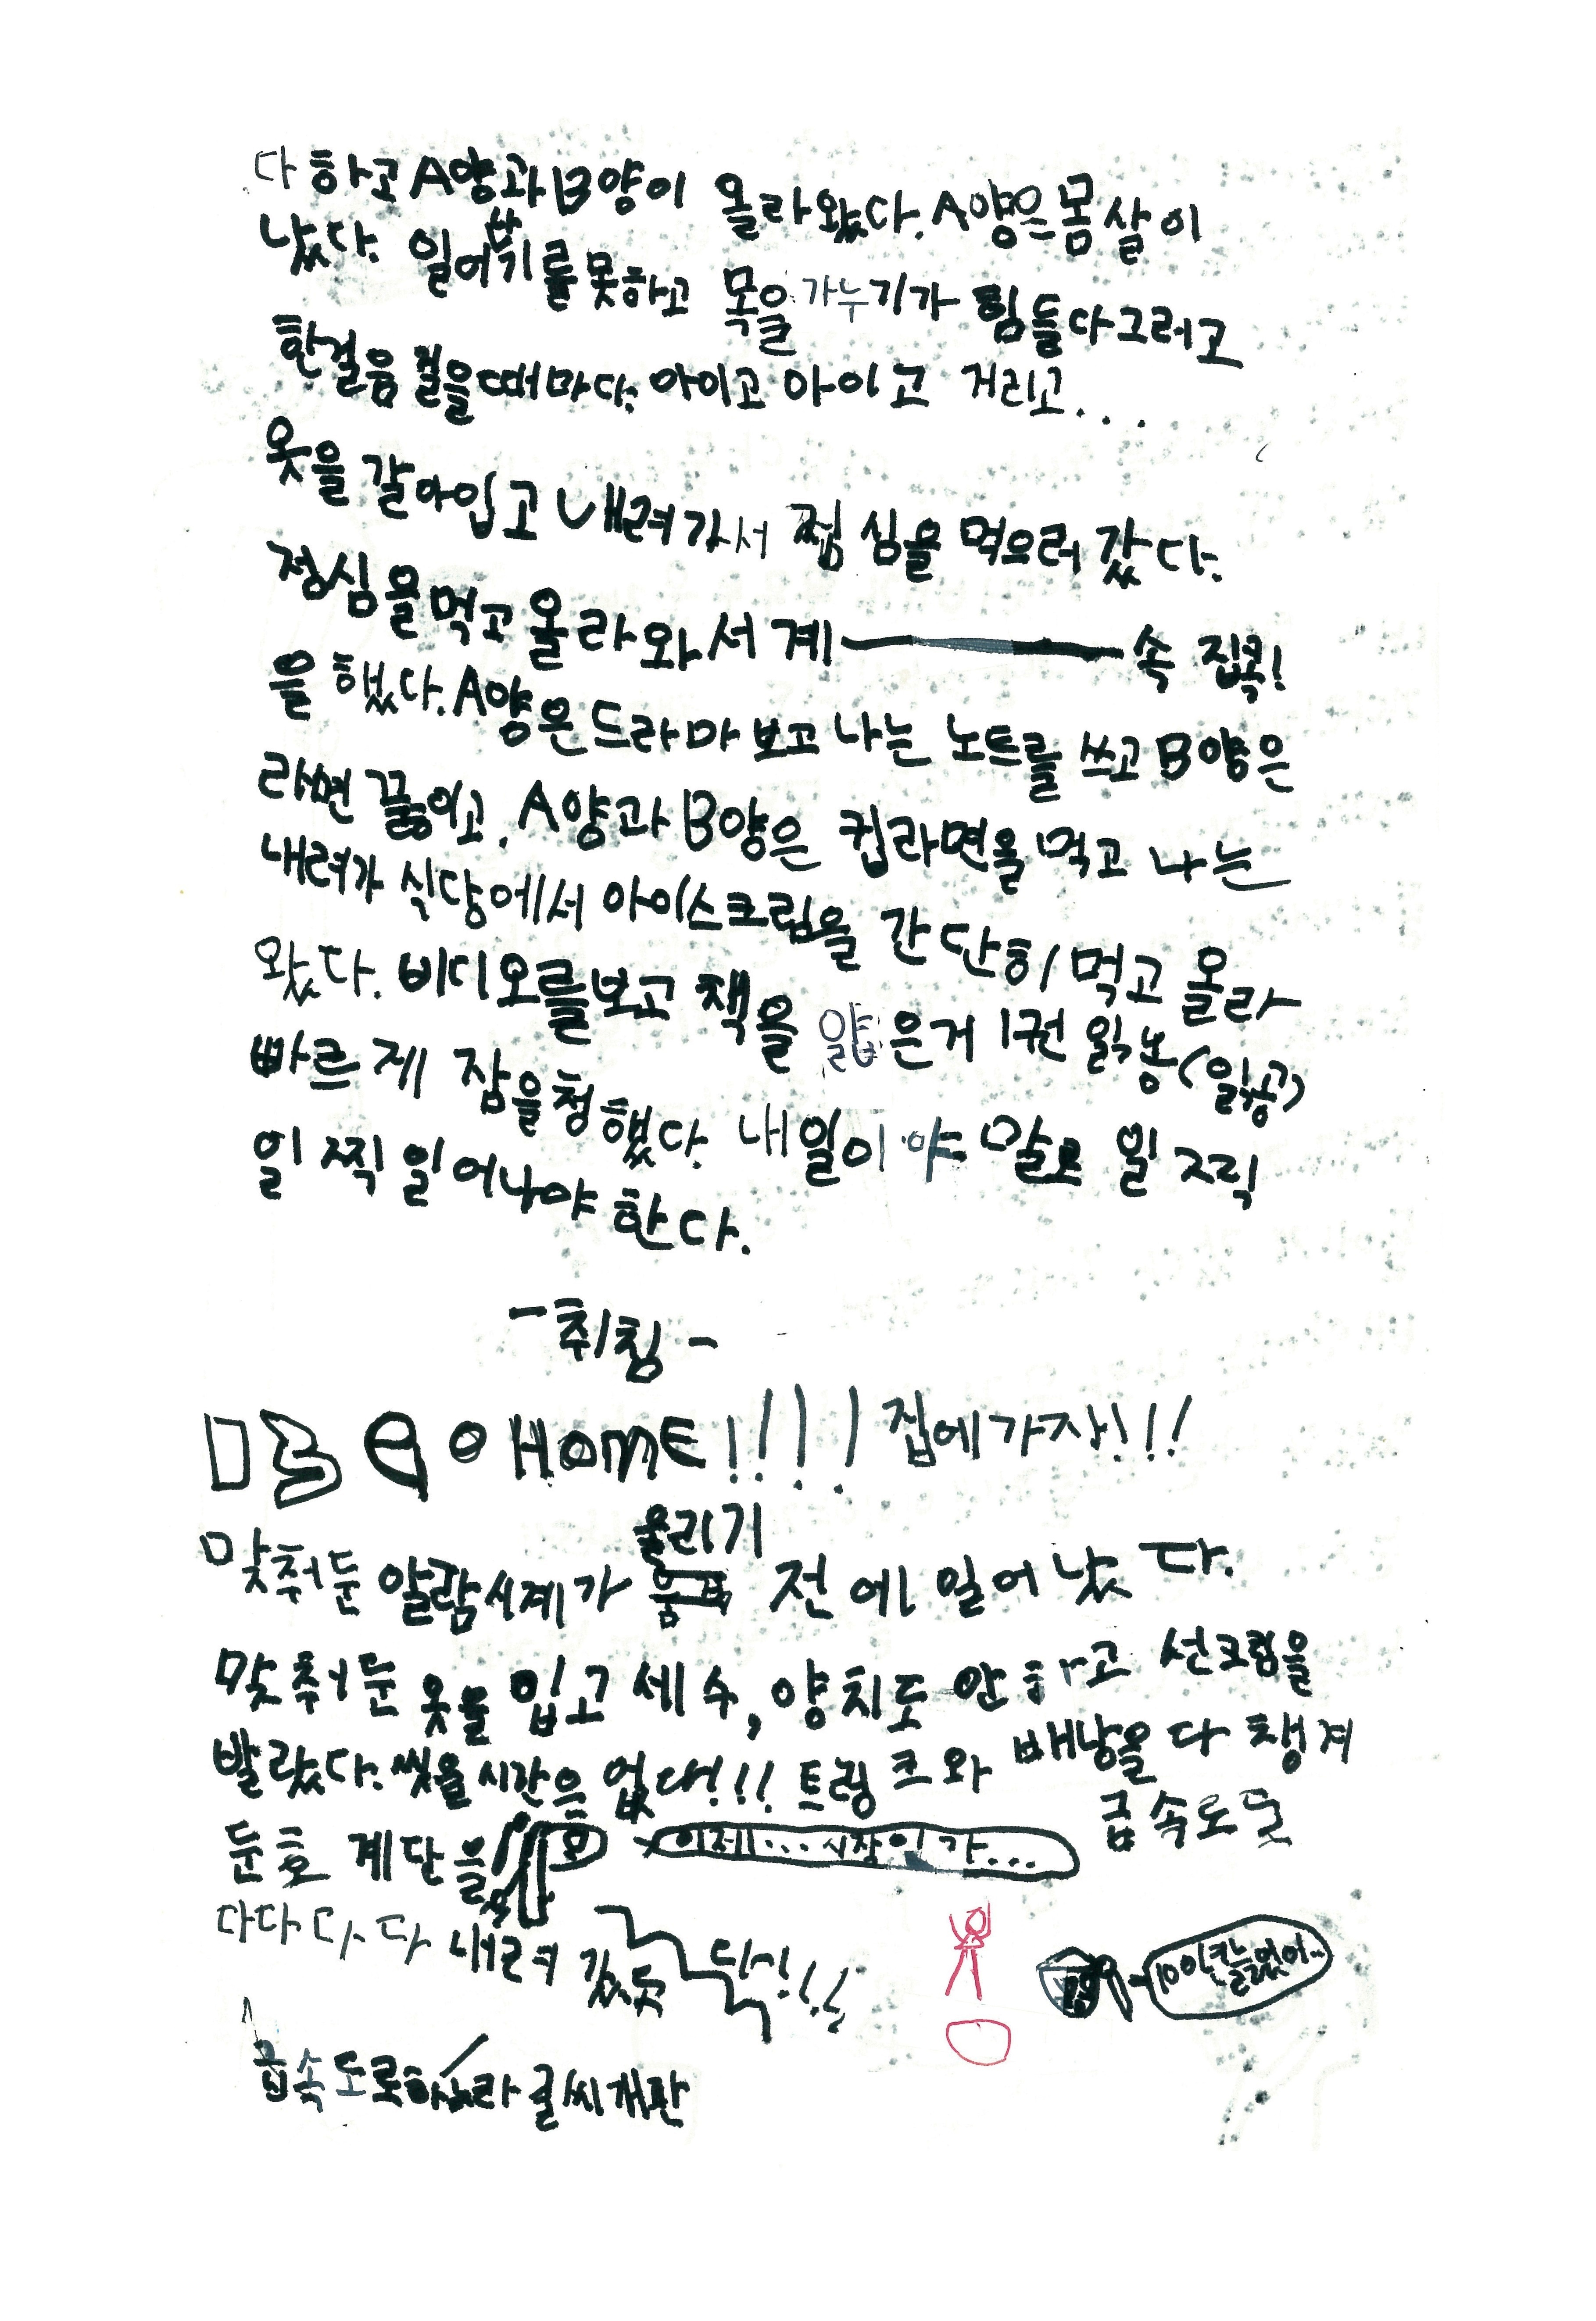 다 하고 A양과 B양이 올라왔다. A양은 몸살이
났다. 일어나기를 못하고 목을 가누기가 힘들다그러고
한걸음 걸을때마다 아이고 아이고 거리고...
옷을 갈아입고 내려가서 쩜심을 먹으러 갔다.
점심을 먹고 올라와서 계ㅡ속 집콕!
을 했다. A양은 드라마 보고 나는 노트를 쓰고 B양은
라면 끓이고, A양과 B양은 컵라면을 먹고 나는
내려가 식당에서 아이스크림을 간단히 먹고 올라
왔다. 비디오를 보고 책을 얇은거 1권 읽공 (읽공)
빠르게 잠을 청했다. 내일이야 말로 일찍
일찍 일어나야 한다.
-취침-
HOME!!!! 집에가자!!!
맞춰둔 알람시계가 울리기 전에 일어났다.
맞춰둔 옷을 입고 세수, 양치도 안하고 선크림을
발랐다. 씻을 시간은 없다!!! 트렁크와 배낭을 다 챙겨
둔 후 계단을 급속도로
이제... 시작인가...
다다다다다 내려갔다!!!
100만 칼을 없어..
급속도로하느라 글씨개판